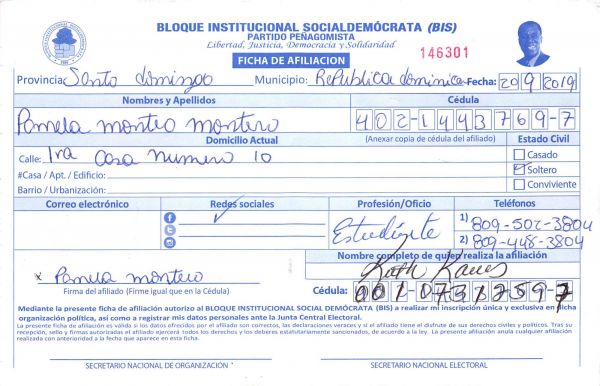 BLOQUE INSTITUCIONAL SOCIALDEMÓCRATA (BIS)
PARTIDO PEÑAGOMISTA
Libertad, Justicia, Democracia y Solidaridad
FICHA DE AFILIACION
146301
Provincia: Santo domingo Municipio: Republica dominica Fecha: 20 9 2019
Nombres y Apellidos Cédula
Pamela monteo montero 402-1493769-7
Domicilio Actual (Anexar copia de cédula del afiliado) Estado Civil
Calle: 1ra Casa numero 10
Casado
#Casa / Apt. / Edificio: Soltero
Barrio / Urbanización: Conviviente
Correo electrónico Redes sociales Profesión/Oficio Teléfonos
Estudiante
1) 809-502-3804
2) 809-448-3804
Nombre completo de quien realiza la afiliación
x Pamela montero
Firma del afiliado (Firme igual que en la Cédula) Cédula: 001-0731259-7
Mediante la presente ficha de afiliación autorizo al BLOQUE INSTITUCIONAL SOCIAL DEMÓCRATA (BIS) a realizar mi inscripción única y exclusiva en ficha
organización política, así como a registrar mis datos personales ante la Junta Central Electoral.
La presente ficha de afiliación es válida si los datos ofrecidos por el afiliado son correctos, las declaraciones veraces y si el afiliado tiene el disfrute de sus derechos civiles y políticos. Tras su
recepción, sello y firmas autorizadas el afiliado ejercerá todos los derechos y los deberes estatutariamente sancionados, de acuerdo a la ley. La presente afiliación anula cualquier afiliación
realizada con anterioridad a la fecha que aparece en esta ficha.
SECRETARIO NACIONAL DE ORGANIZACIÓN SECRETARIO NACIONAL ELECTORAL